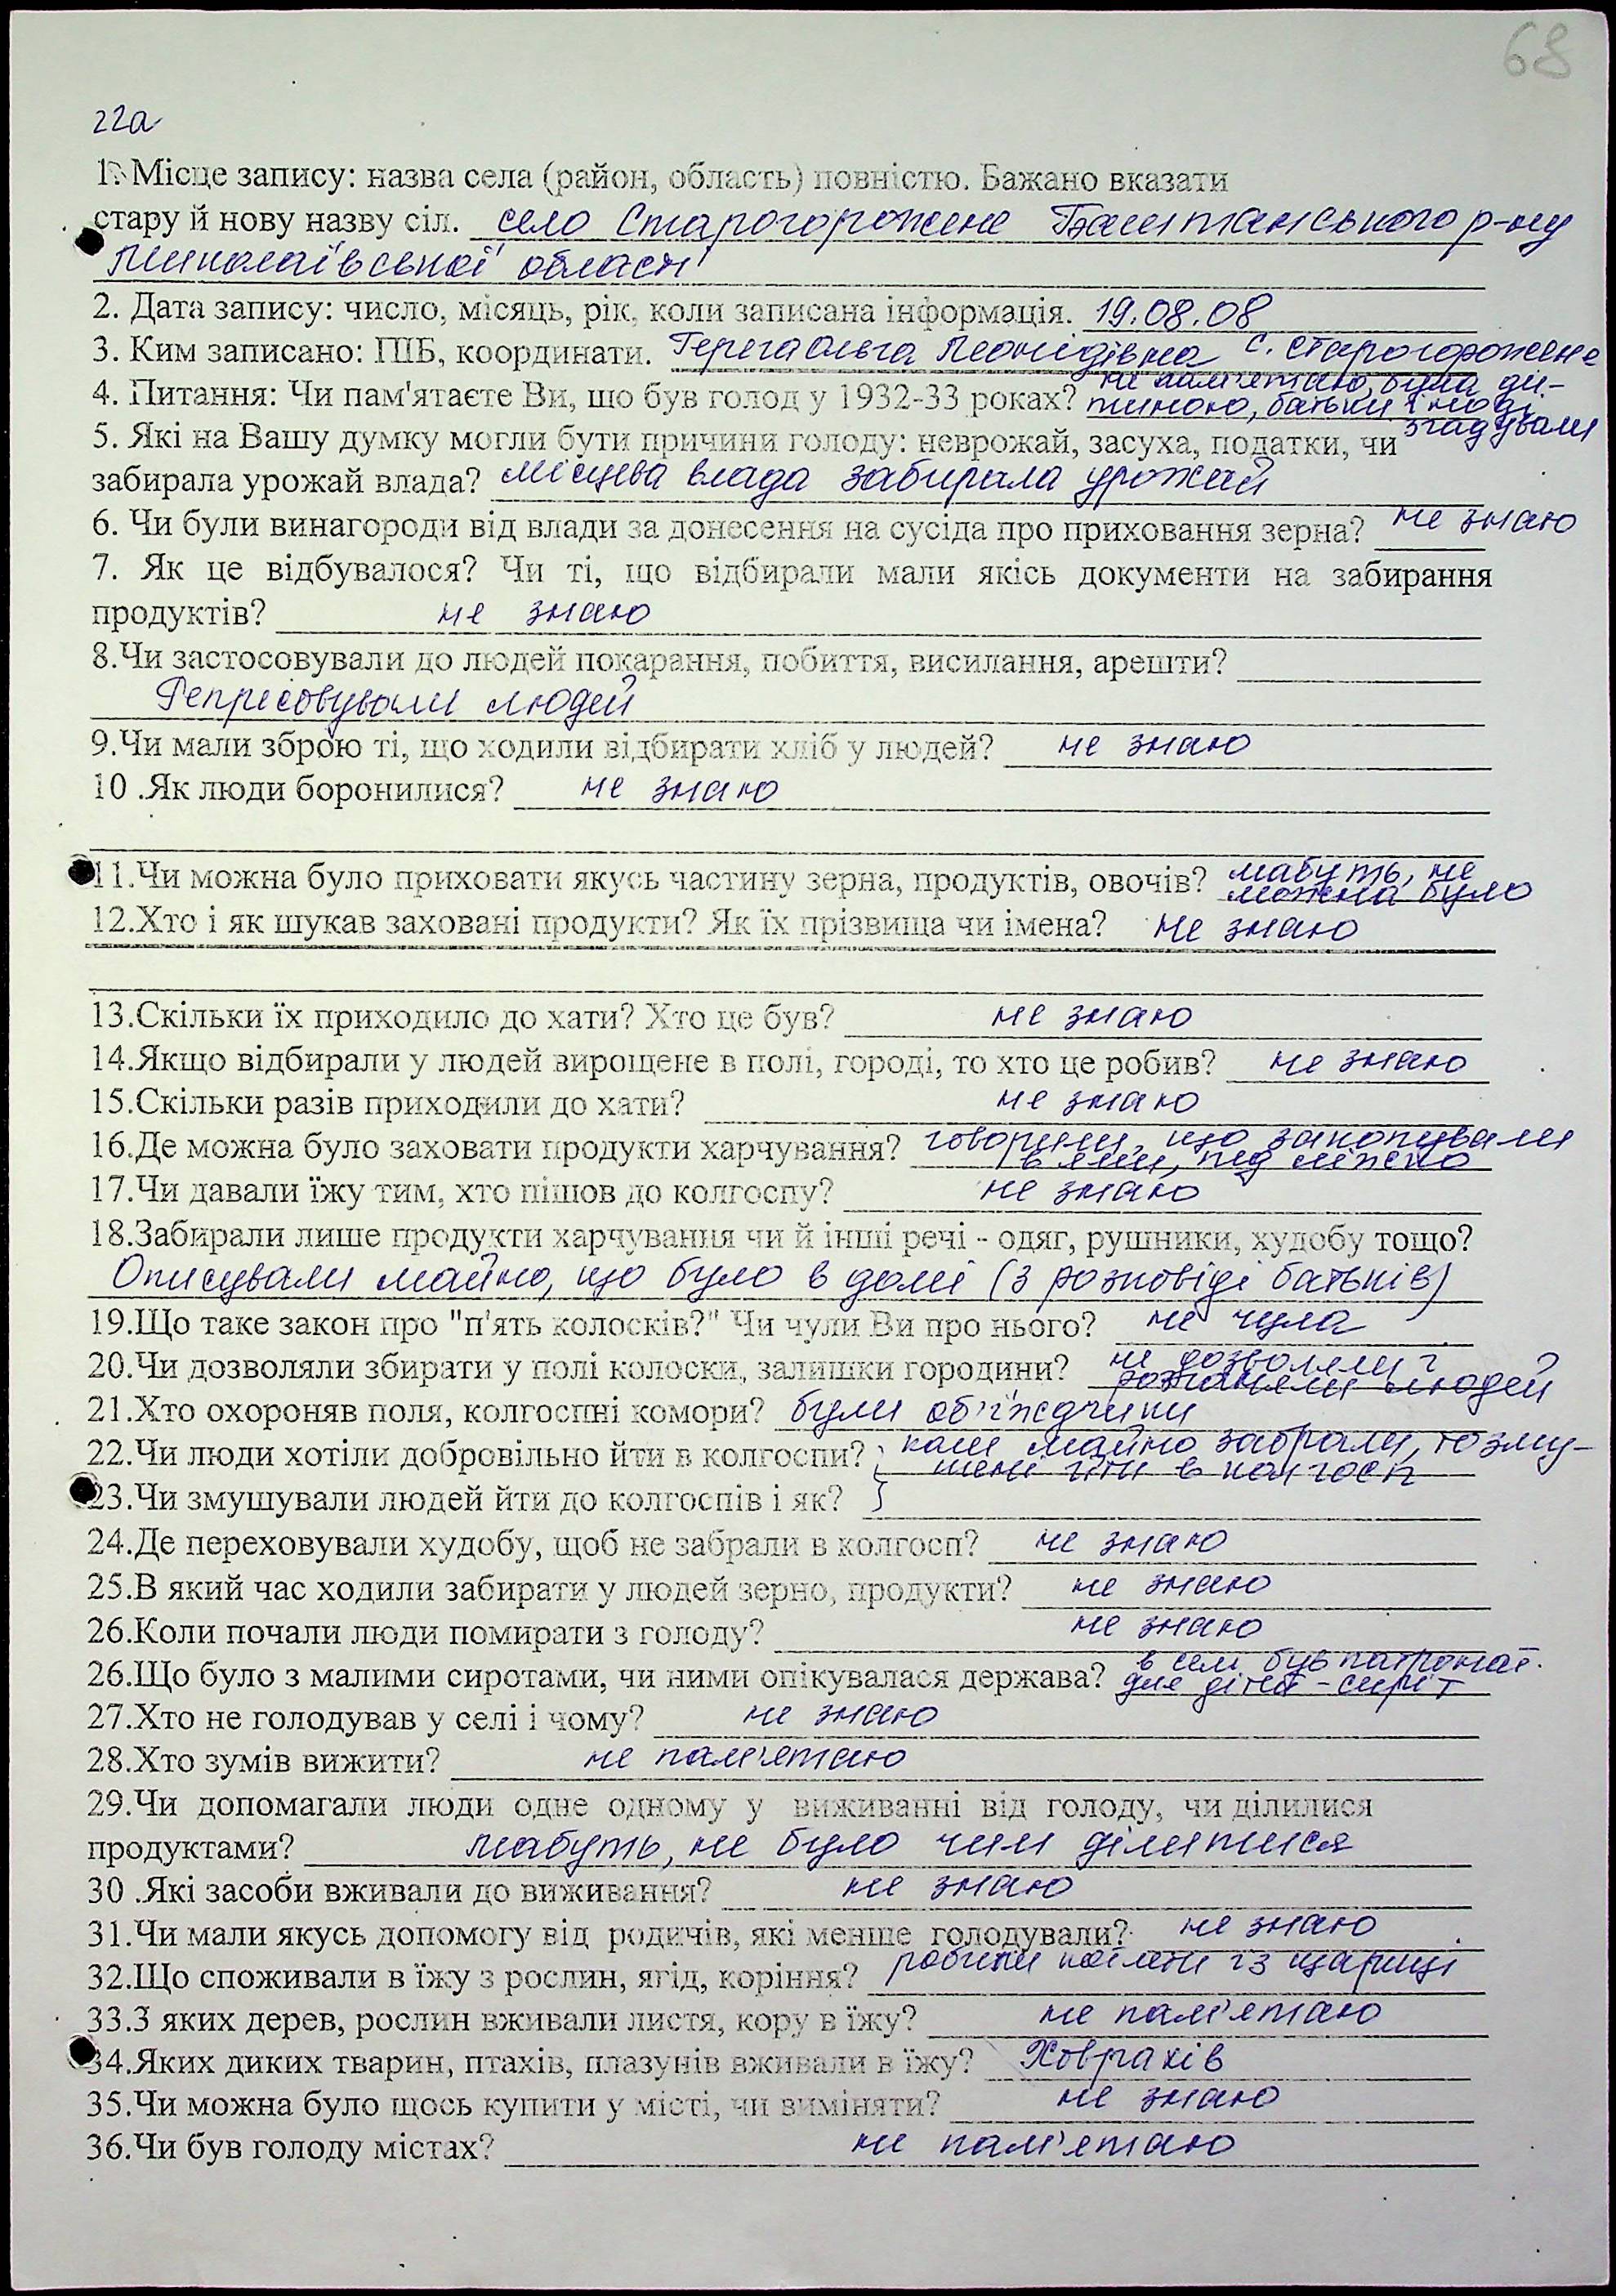 68
22а
1. Місце запису: назва села (район, область) повністю. Бажано вказати
стару й нову назву сіл. село Старогорожене Баштанського р-ну
Миколаївської області
2. Дата запису: число, місяць, рік, коли записана інформація. 19.08.08
3. Ким записано: ПІБ, координати. Ольга Леонідівна с. Старогорожене
4. Питання: Чи пам'ятаєте Ви, шо був голод у 1932-33 роках? не пам'ятаю, була ди-
тиною, батьки іноді
згадували
5. Які на Вашу думку могли бути причини голоду: неврожай, засуха, податки, чи
забирала урожай влада? місцева влада забирала урожай
6. Чи були винагороди від влади за донесення на сусіда про приховання зерна? не знаю
7. Як це відбувалося? Чи ті, що відбирали мали якісь документи на забирання
продуктів? не знаю
8.Чи застосовували до людей покарання, побиття, висилання, арешти?
Репресовували людей
9.Чи мали зброю ті, що ходили відбирати хліб у людей? не знаю
10 .Як люди боронилися? не знаю
11.Чи можна було приховати якусь частину зерна, продуктів, овочів? мабуть, не
можна було
12.Хто і як шукав заховані продукти? Як їх прізвища чи імена? не знаю
13.Скільки їх приходило до хати? Хто це був? не знаю
14.Якщо відбирали у людей вирощене в полі, городі, то хто це робив? не знаю
15.Скільки разів приходили до хати? не знаю
16.Де можна було заховати продукти харчування? говорили, що закопували
в ями, під ліжко
17.Чи давали їжу тим, хто пішов до колгоспу? не знаю
18.Забирали лише продукти харчування чи й інші речі - одяг, рушники, худобу тощо?
Описували майно, що було в домі (з розповіді батьків)
19.Що таке закон про "п'ять колосків?" Чи чули Ви про нього? не чула
20.Чи дозволяли збирати у полі колоски, залишки городини? не дозволяли і
розганяли людей
21.Хто охороняв поля, колгоспні комори? були об'їждчики
22.Чи люди хотіли добровільно йти в колгоспи? коли майно забрали, то зму-
шені йти в колгосп
23.Чи змушували людей йти до колгоспів і як?
24.Де переховували худобу, щоб не забрали в колгосп? не знаю
25.В який час ходили забирати у людей зерно, продукти? не знаю
26.Коли почали люди помирати з голоду? не знаю
26.Що було з малими сиротами, чи ними опікувалася держава? в селі був патронат
для дітей - сиріт
27.Хто не голодував у селі і чому? не знаю
28.Хто зумів вижити? не пам'ятаю
29.Чи допомагали люди одне одному у виживанні від голоду, чи ділилися
продуктами? мабуть, не було чим ділитися
30 .Які засоби вживали до виживання? не знаю
31.Чи мали якусь допомогу від родичів, які менше голодували? не знаю
32.Що споживали в їжу з рослин, ягід, коріння? робили котлети із щириці
33.З яких дерев, рослин вживали листя, кору в їжу? не пам'ятаю
34.Яких диких тварин, птахів, плазунів вживали в їжу? Ховрахів
35.Чи можна було щось купити у місті, чи виміняти? не знаю
36.Чи був голоду містах? не пам'ятаю